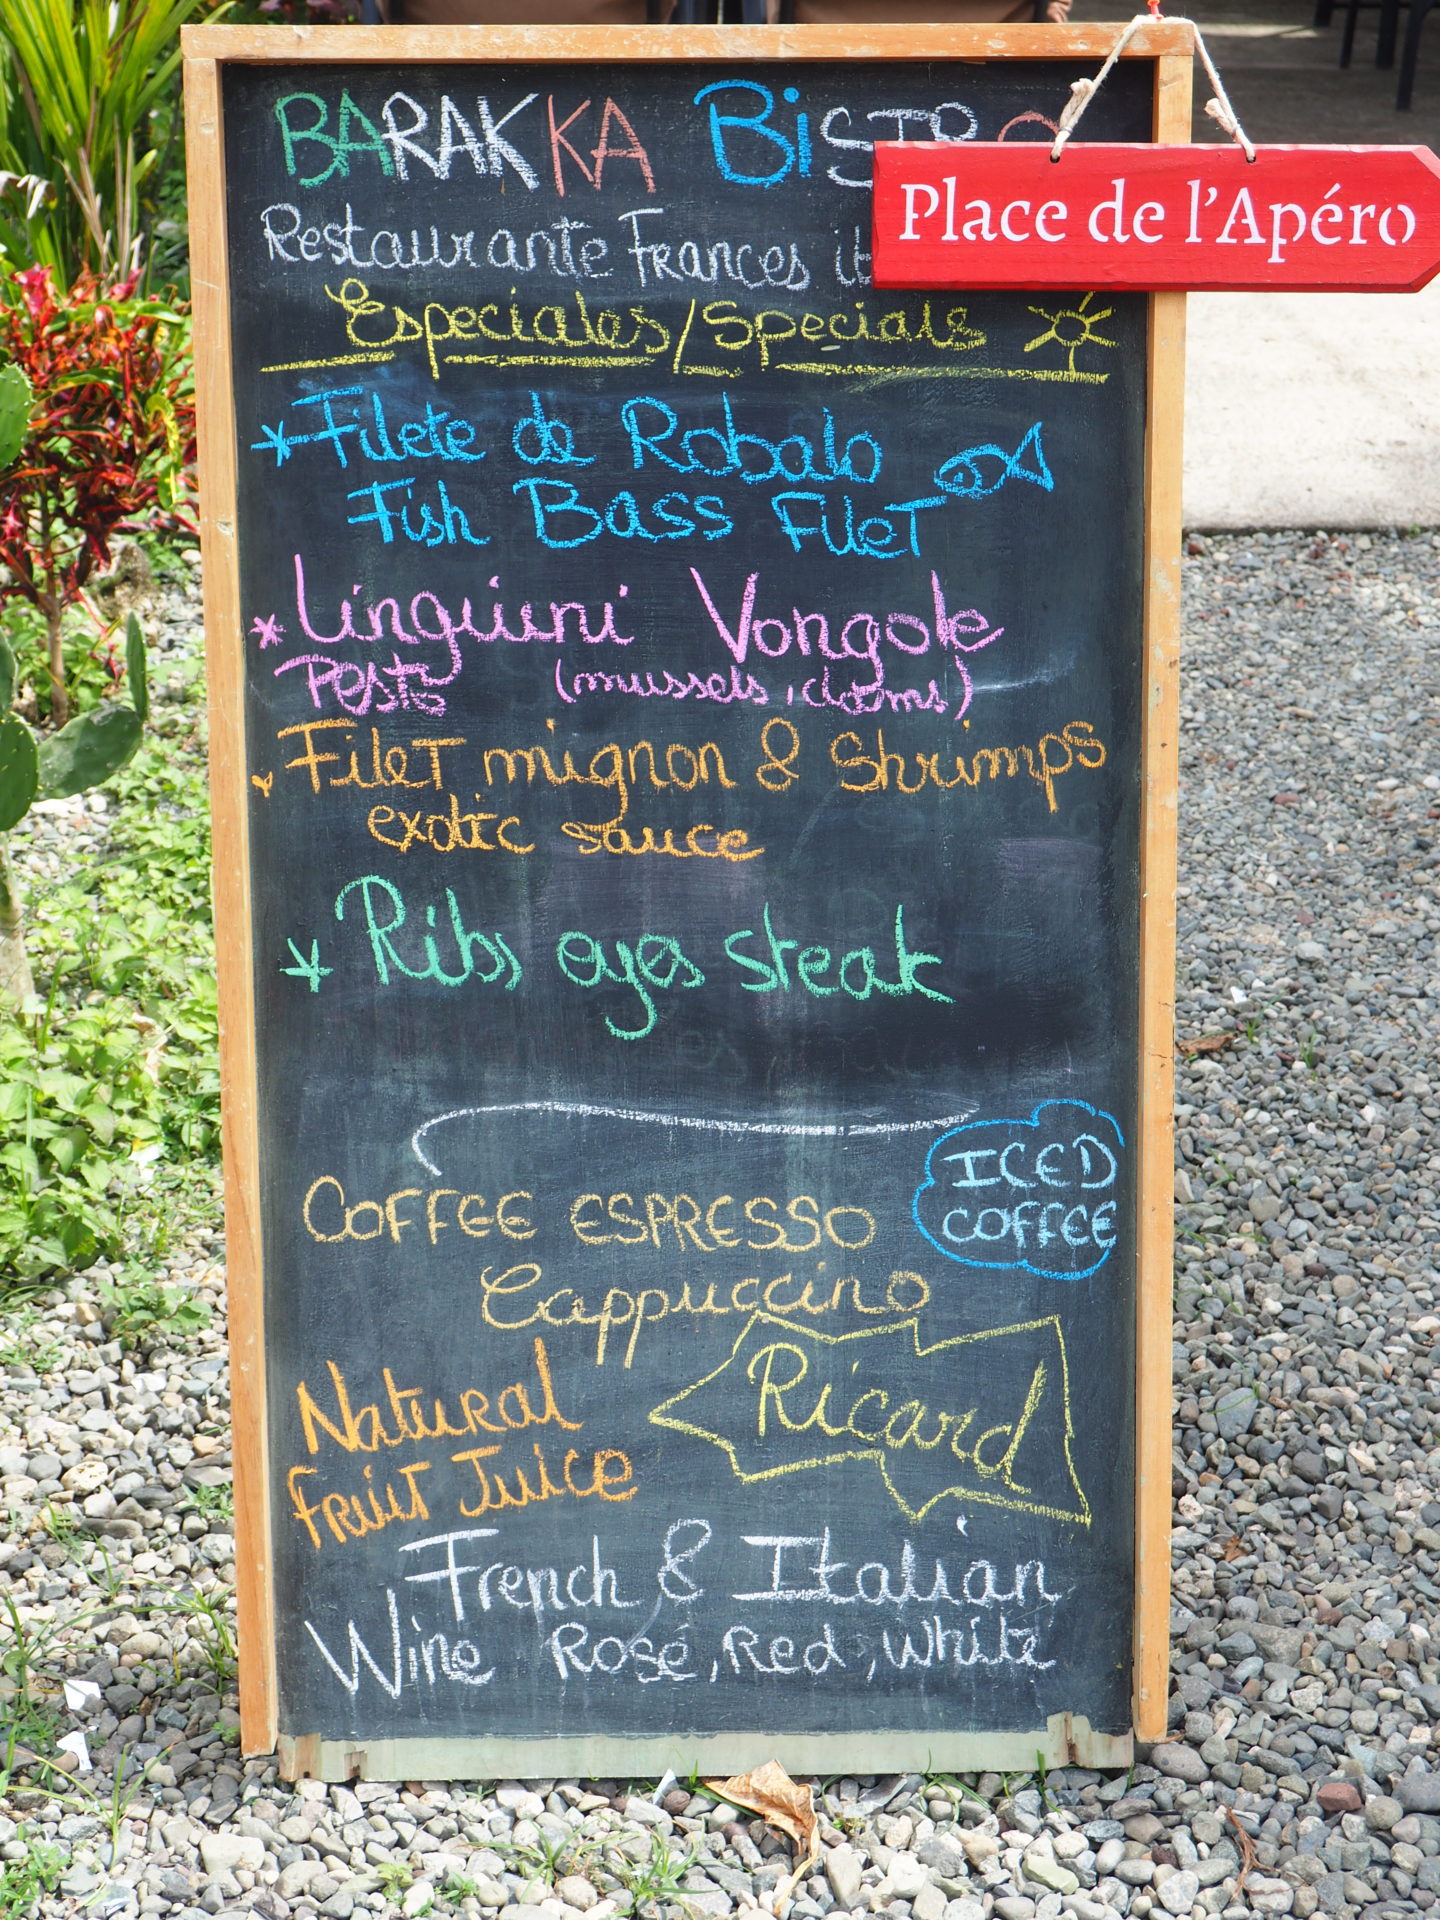 BARAKKA BiSTRO
Place de l'Apéro
Restaurante Frances
Especiales/Specials
Filete de Robalo
Fish Bass Filet
Linguini Vongole
Pesto (mussels, clams)
Filet mignon & Shrimps
exotic sauce
Ribs eyes steak
ICED
COFFEE
COFFEE ESPRESSO
Cappuccino
Ricard
Natural
Fruit Juice
French & Italian
Wine Rosé, Red, White